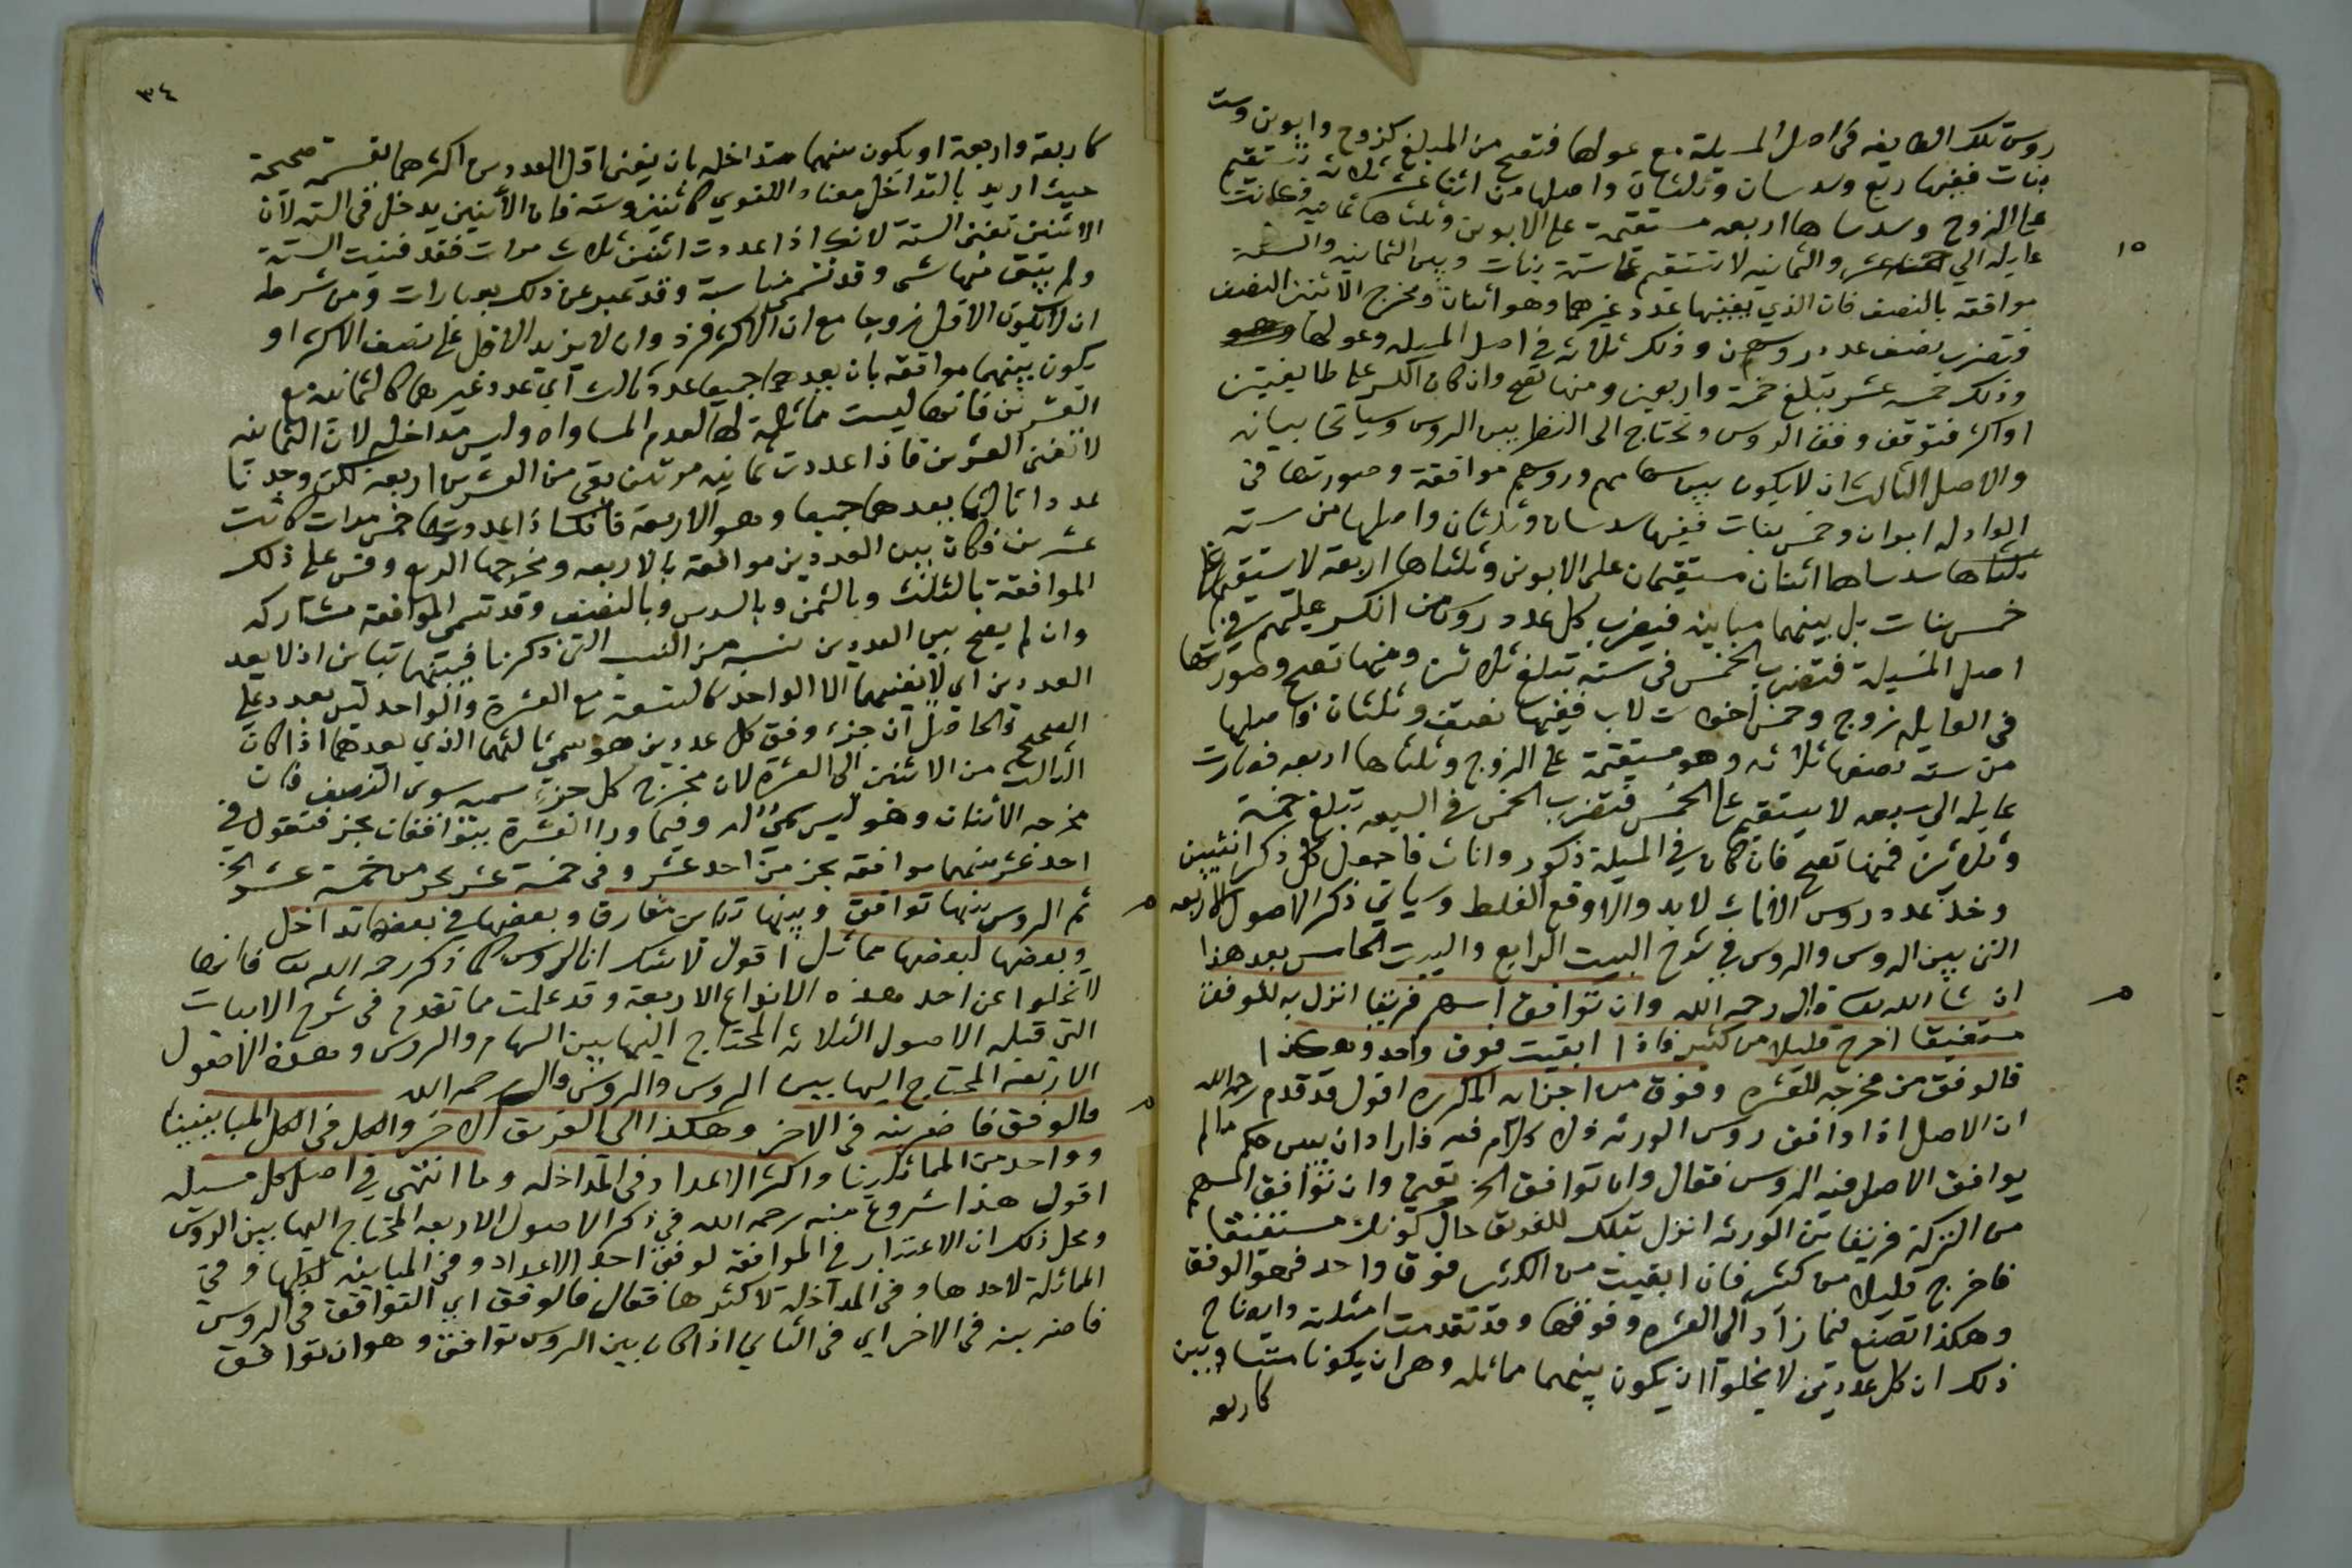 روس تلك الطايفه في اصل المسيلة مع عولها فتصح من المبلغ كزوج وابوين وست
بنات ففيها ربع وسدسان وثلثان واصلها من اثنا عشر ثلاثة تستقيم
على الزوج وسدساها اربعه مستقيمة على الابوين وثلثاها ثمانيه فعالت
عايله الي خمسة عشر والثمانيه لا تستقيم على ستة بنات وبين الثمانيه والستة
١٥
موافقه بالنصف فان الذي يفنيها عدد غيرهما وهو اثنان ومخرج الاثنين النصف
فتضرب نصف عدد روسهن وذلك ثلاثه في اصل المسيله وعولها
وذلك خمسه عشر تبلغ خمسة واربعين ومنها تصح وان كان الكسر على طايفتين
او اكثر فتوقف وفق الروس وتحتاج الى النظر بين الروس وسياتي بيانه
والاصل الثالث ان لا يكون بين سهامهم وروسهم موافقة وصورتها في
الوادله ابوان وخمس بنات ففيها سدسان وثلثان واصلها من سته
ثلثاها سدساها اثنان مستقيمان على الابوين وثلثاها اربعة لا تستقيم على
خمس بنات بل بينهما مباينه فيضرب كل عدد روس من انكسر عليهم في
اصل المسيلة فتضرب الخمس في سته تبلغ ثلاثين ومنها تصح وصورتها
في العايله زوج وخمس اخوات لاب ففيها نصف وثلثان واصلها
من سته نصفها ثلاثه وهو مستقيمة على الزوج وثلثاها اربعه فصارت
عايله الي سبعه لا يستقيم على الخمس فتضرب الخمس في السبعه تبلغ خمسة
وثلاثين فمنها تصح فان كان في المسيلة ذكور واناث فاجعل كل ذكر انثيين
وخذ عدد روس الاناث لابد والا وقع الغلط وسياتي ذكر الاصول الاربعه
التي بين الروس والروس في شرح البيت الرابع والبيت الخامس بعد هذا
ان شا الله تعالى قال رحمه الله وان توافق اسهم فريقا انزل به للوفق
مستفيقا اخرج قليلا من كثير فاذا ابقيت فوق واحد وهكذا
فالوفق من مخرجه للعشره وفوق من اجزائه المكرره اقول قد قدم رحمه الله
ان الاصل اذا وافق روس الورثه فلا كلام فيه فاراد ان يبين حكم مالم
يوافق الاصل فيه الروس فقال وان توافق الخ يعني وان توافق السهم
من التركة فريقا من الورثه انزل بتلك للفريق حال كونك مستفيقا
فاخرج قليلا من كثير فان ابقيت من الكثير فوق واحد فهو الوفق
وهكذا تصنع فيما زاد الي العشره وفوقها وقد تقدمت امثلته وايضاح
ذلك ان كل عددين لا يخلوا ان يكون بينهما مماثله وهي ان يكونا متساويين
كاربعه
٣٤
كاربعة واربعة او يكون بينهما متداخله بان يفني اقل العددين اكثرهما لقسمة صحيحة
حيث اريد بالتداخل معناه اللغوي كاثنين وسته فان الاثنين يدخل في الستة لان
الاثنين تفني الستة لانك اذا عددت اثنين ثلاث مرات فقد فنيت الستة
ولم يبق منها شي وقد تسمى مناسبة وقد تعبر عن ذلك بعبارات ومن شرطه
ان لا يكون الاقل زوجا مع ان الاكثر فرد وان لا يزيد الاقل على نصف الاكثر او
يكون بينهما موافقة بان يعدهما جميعا عدد ثالث اي عدد غيرهما كالثمانيه مع
العشرين فانها ليست مماثلة لها لعدم المساواه وليس مداخله لان الثمانيه
لا تفني العشرين فاذا عددت ثمانيه مرتين بقي من العشرين اربعه لكن وجدنا
عددا ثالثا يعدهما جميعا وهو الاربعة فانك اذا عددتها خمس مرات كانت
عشرين فكان بين العددين موافقة بالاربعه ومخرجها الربع وقس على ذلك
الموافقة بالثلث وبالثمن وبالسدس وبالنصف وقد تسمى الموافقة مشاركه
وان لم يصح بين العددين نسبه من النسب التي ذكرنا فبينهما تباين اذ لا يعد
العددين اي لا يفنيهما الا الواحد كالتسعة مع العشرة والواحد ليس بعدد على
الصحيح والحاصل ان جزء وفق كل عددين هو سمي ثالثهما الذي يعدهما اذا كان
الثالث من الاثنين الى العشرة لان مخرج كل جزء سميه سوى النصف فان
مخرجه الاثنان وهو ليس سمي له وفيما ورا العشرة يتوافقان بجز فتقول في
احد عشر بينهما موافقه بجز من احد عشر وفي خمسة عشر بجز من خمسة عشر الخ
ثم الروس بينها توافق وبينها تباين مفارق وبعضها في بعضها تداخل
وبعضها لبعضها مماثل اقول لا شك ان الروس كما ذكر رحمه الله تعالى فانها
لا تخلوا عن احد هذه الانواع الاربعة وقد علمت مما تقدم في شرح الابيات
التي قبله الاصول الثلاثه المحتاج اليها بين السهام والروس وهذه الاصول
الاربعه المحتاج اليها بين الروس والروس قال رحمه الله
فالوفق فاضربنه في الاخر وهكذا الى الفريق الاخر والكل في الكل المباينينا
وواحد من المماثلينا واكثر الاعداد في المداخله وما انتهى في اصل كل مسيله
اقول هذا شروع منه رحمه الله في ذكر الاصول الاربعه المحتاج اليها بين الروس
ومحل ذلك ان الاعتبار في الموافقة لوفق احد الاعداد وفي المباينه لكلها وفي
المماثلة لاحدها وفي المداخلة لاكثرها فقال فالوفق اي التوافق في الروس
فاضربنه في الاخر اي في الثاني اذا كان بين الروس توافق وهو ان توافق